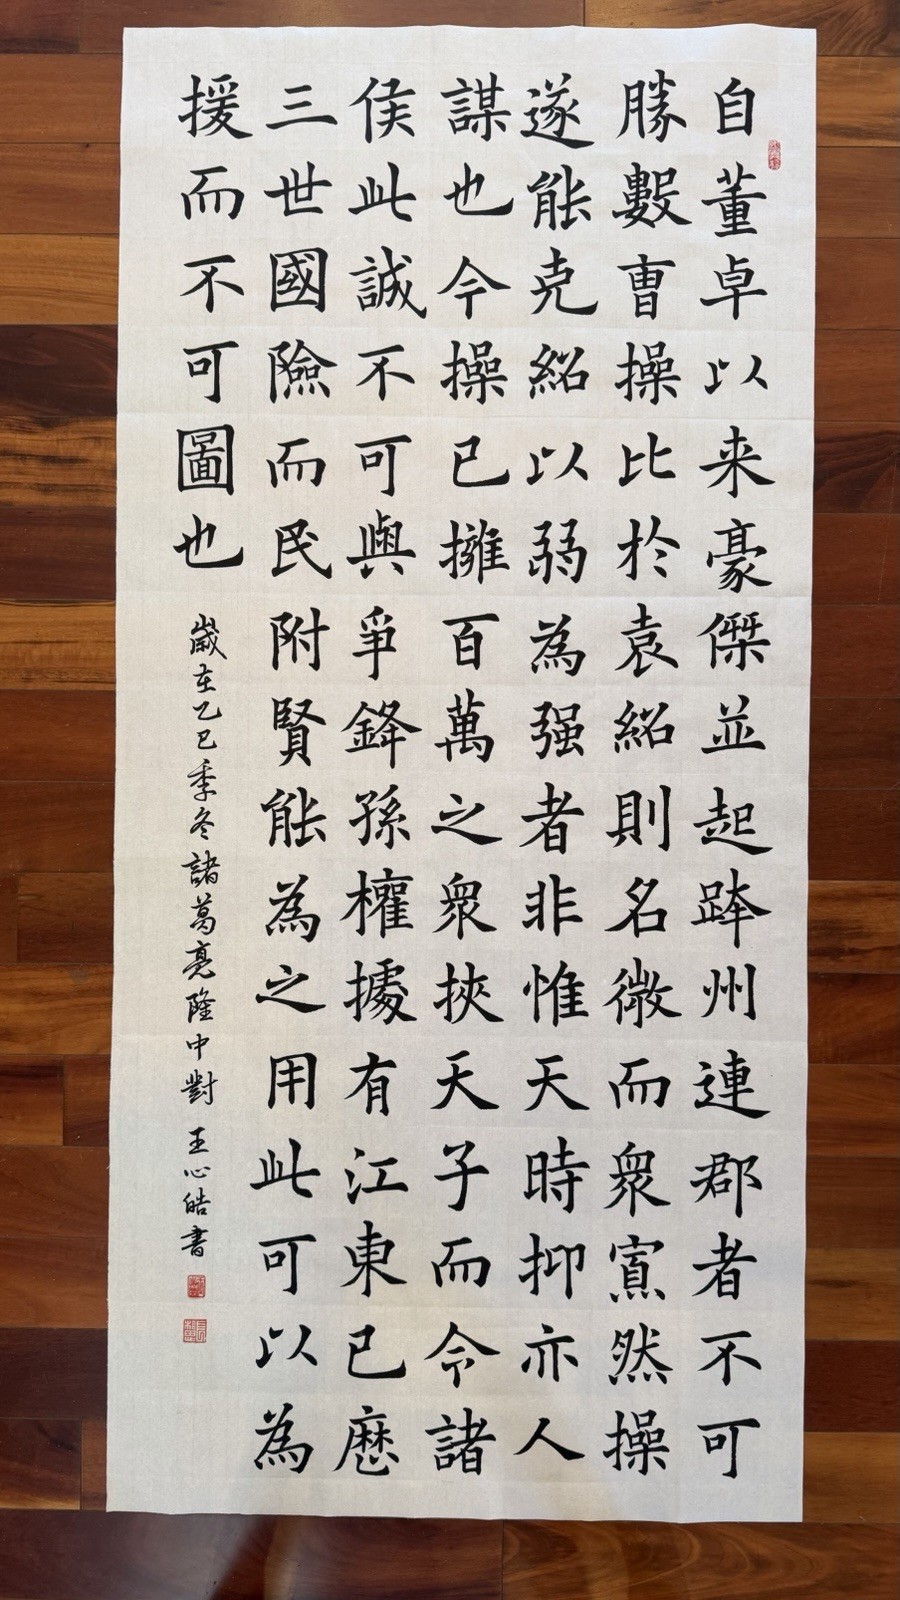 自董卓以来豪傑並起跨州連郡者不可
勝數曹操比於袁紹則名微而眾寡然操
遂能克紹以弱為强者非惟天時抑亦人
謀也今操已擁百萬之眾挾天子而令諸
侯此誠不可與爭鋒孫權據有江東已歷
三世國險而民附賢能為之用此可以為
援而不可圖也
歲在乙巳季冬諸葛亮隆中對 王心皓書